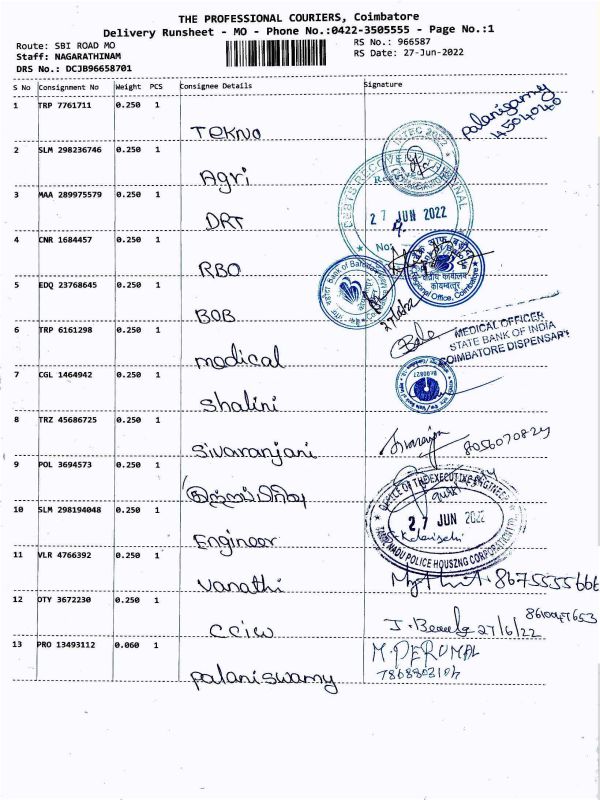 THE PROFESSIONAL COURIERS, Coimbatore
Delivery Runsheet - MO - Phone No.:0422-3505555 - Page No.:1
Route: SBI ROAD MO
RS No.: 966587
Staff: NAGARATHINAM
RS Date: 27-Jun-2022
DRS No.: DCJB96658701
S No Consignment No Weight PCS Consignee Details Signature
1 TRP 7761711 0.250 1
Tekno
palanisamy
2 SLM 298236746 0.250 1
Agri
INTEC 2022
3 MAA 289975579 0.250 1
DRT
27 JUN 2022
4 CNR 1684457 0.250 1
No:
RBO
क्षेत्रीय कार्यालय
कोयम्बतूर
Regional Office, Coimbatore
5 EDQ 23768645 0.250 1
BOB
Bank of Baroda
6 TRP 6161298 0.250 1
medical
MEDICAL OFFICER
STATE BANK OF INDIA
COIMBATORE DISPENSARY
7 CGL 1464942 0.250 1
Shalini
8 TRZ 45686725 0.250 1
Sivaranjani
8056070824
9 POL 3694573 0.250 1
10 SLM 298194048 0.250 1
Engineer
OFFICE OF THE EXECUTIVE ENGINEER
27 JUN 2022
TAMIL NADU POLICE HOUSING CORPORATION
11 VLR 4766392 0.250 1
Vanathi
8675535666
12 OTY 3672230 0.250 1
CCIW
27/6/22
13 PRO 13493112 0.060 1
Palaniswamy
M. PERUMAL